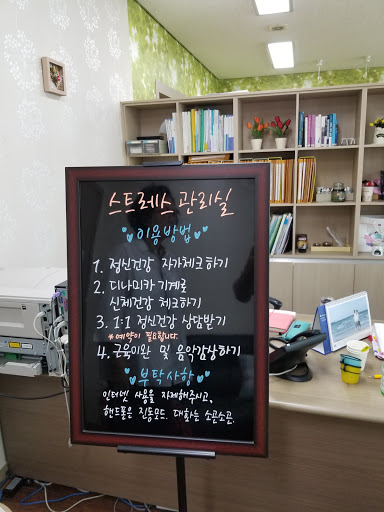 스트레스 관리실
이용방법
1. 정신건강 자가체크하기
2. 디나미카 기계로
신체건강 체크하기
3. 1:1 정신건강 상담받기
*예약이 필요합니다.
4. 근육이완 및 음악감상하기
부탁사항
인터넷 사용을 자제해주시고,
핸드폰은 진동모드. 대화는 소곤소곤.